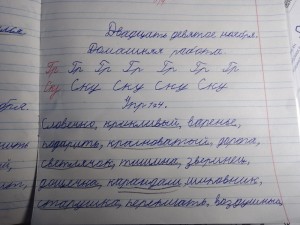 Двадцать девятое ноября.
Домашняя работа.
Гр Гр Гр Гр Гр Гр
Ску Ску Ску Ску Ску
Упр.
Словечко, крикливый, варенье,
подарить, красноватый, дорога,
светлячок, тишина, зверинец,
дощечка, карандаш, шиповник,
сторожка, перешагать, воздушный